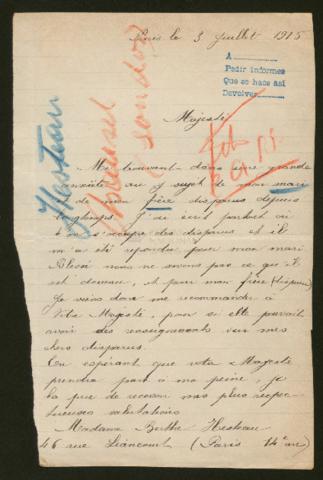 Paris le 3 Juillet 1915
A
Pedir informes
Que se hace asi
Devolver
Majesté
Me trouvant dans une grande
anxiété au sujet de mon mari
et de mon frère disparus depuis
longtemps. J'ai écrit partout où
l'on s'occupe des disparus et il
m'a été répondu pour mon mari
Blessé nous ne savons pas ce qu'il
est devenu, et pour mon frère (disparu)
Je viens donc me recommander à
Votre Majesté, pour si elle pouvait
avoir des renseignements sur mes
chers disparus.
En espérant que votre Majesté
prendra part à ma peine, je
la prie de recevoir mes plus respec-
tueuses salutations
Madame Berthe Hesteau
46 rue Liancourt (Paris 14e arr)
Hesteau